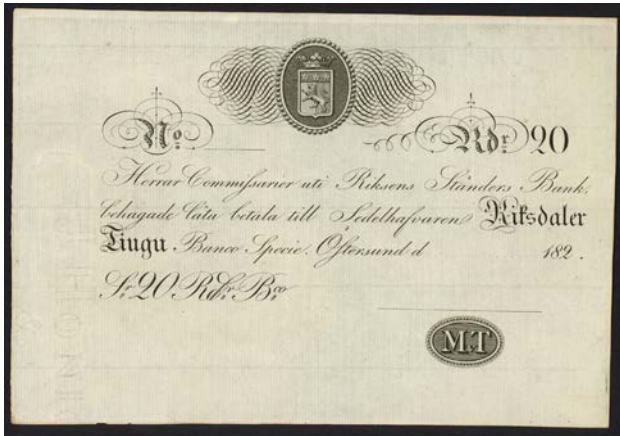 No
Rdr. 20
Herrar Commissarier uti Riksens Ständers Bank,
behagade låta betala till Sedelhafvaren Riksdaler
Tjugu Banco Specie. Östersund d 182 .
Sr. 20 Rdr. Bco
M.T